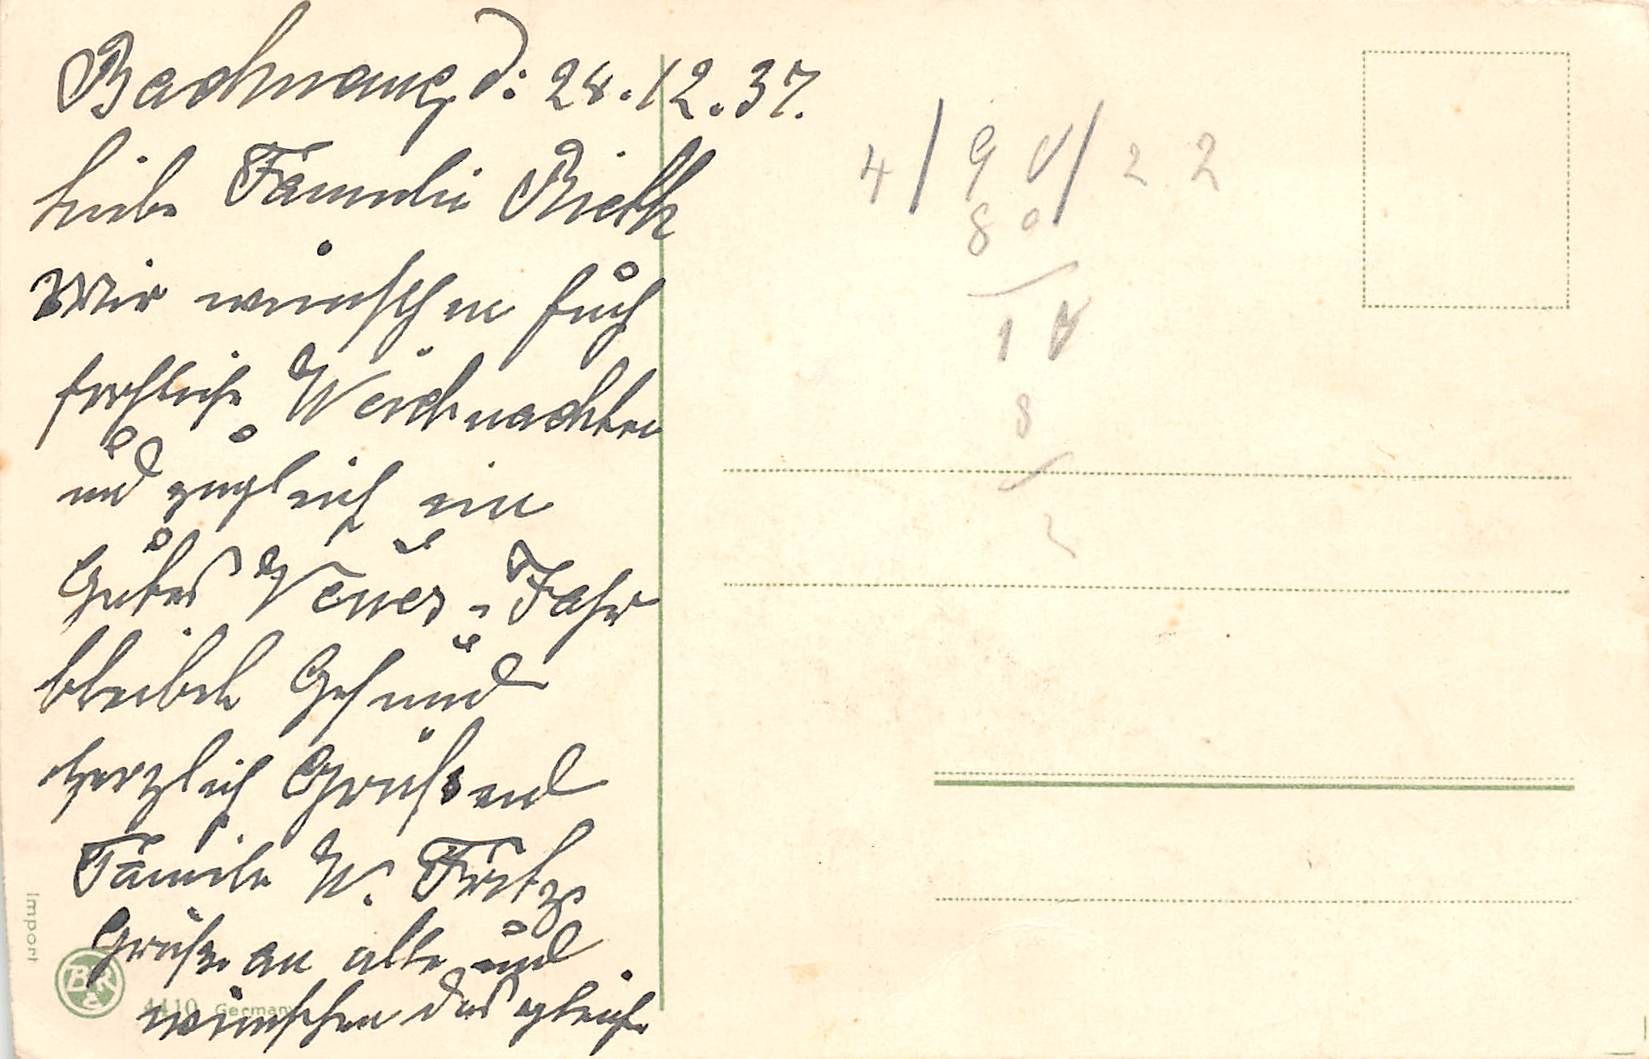 Backnang, d: 24.12.37.
Liebe Familie Rieth
Wir wünschen Euch
fröhliche Weichnachten
und zugleich ein
Gutes Neues = Jahr
bleibet Gesund
Herzlich Grüßend
Familie W. Fritz
Grüße an alle und
wünschen das gleiche
4 / 90 / 22
80
10
8
2
Import
B&R
4410 Germany